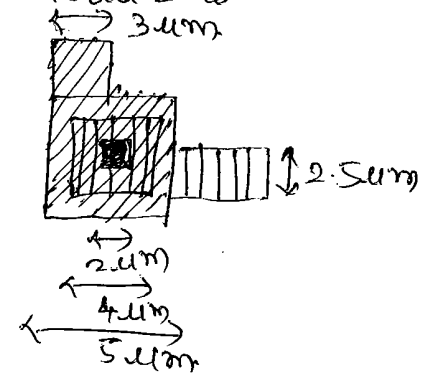 3 μm
2.5μm
2μm
4μm
5μm